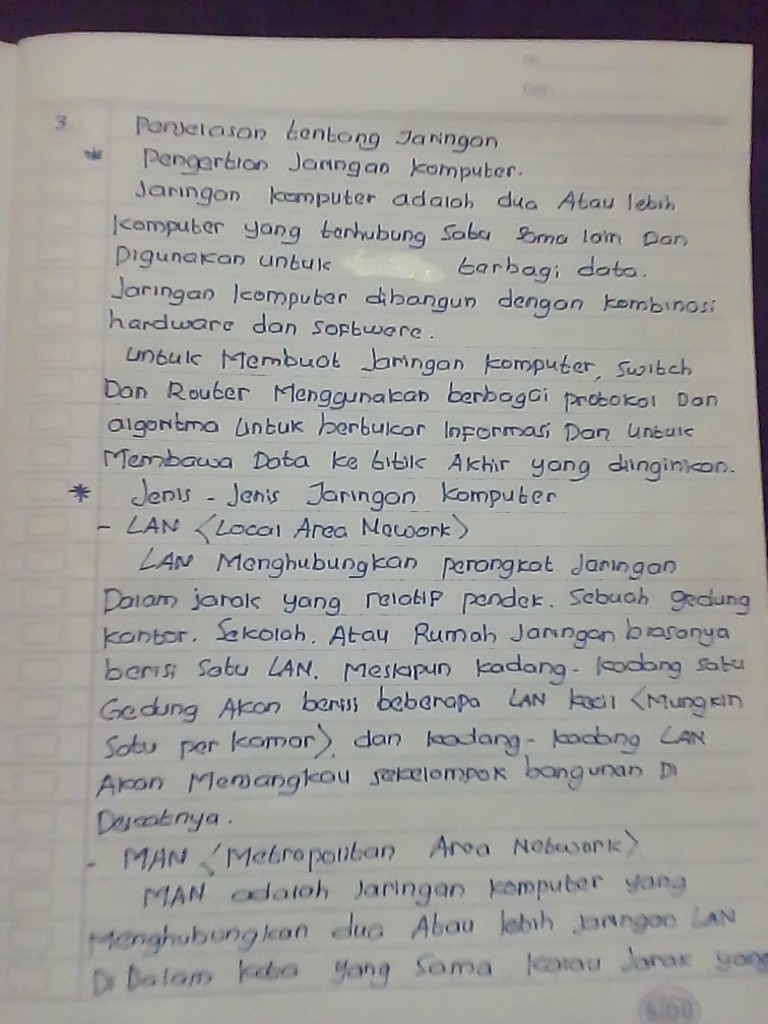 3. Penjelasan tentang Jaringan
* Pengertian Jaringan komputer.
Jaringan komputer adalah dua Atau lebih
komputer yang terhubung satu sama lain Dan
Digunakan untuk berbagi data.
Jaringan komputer dibangun dengan kombinasi
hardware dan software.
untuk Membuat Jaringan komputer, switch
Dan Router Menggunakan berbagai protokol Dan
algoritma untuk bertukar Informasi Dan untuk
Membawa Data ke titik Akhir yang diinginkan.
* Jenis - Jenis Jaringan komputer
- LAN <Local Area Nework>
LAN Menghubungkan perangkat Jaringan
Dalam jarak yang relatif pendek. Sebuah gedung
kantor. Sekolah. Atau Rumah Jaringan biasanya
berisi satu LAN. Meskipun kadang-kadang satu
Gedung Akan berisi beberapa LAN kecil <Mungkin
satu per kamar>, dan kadang-kadang LAN
Akan Menjangkau sekelompok bangunan Di
Dekatnya.
- MAN <Metropolitan Area Network>
MAN adalah Jaringan komputer yang
Menghubungkan dua Atau lebih jaringan LAN
Di Dalam kota yang sama kalau Jarak yang
SIDU